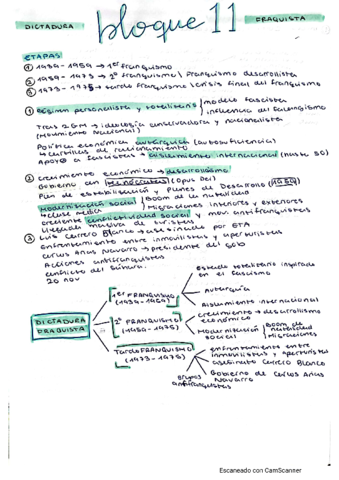 DICTADURA bloque 11 FRANQUISTA
ETAPAS:
① 1939-1959 → 1er Franquismo
② 1959-1973 → 2º Franquismo / Franquismo desarrollista
③ 1973-1975 → tardo Franquismo / crisis final del franquismo
① Régimen personalista y totalitario / modelo fascista
influencia del Falangismo
Tras 2GM → ideología conservadora y nacionalista
(Movimiento Nacional)
Política económica autárquica (autosuficiencia)
→ cartillas de racionamiento
Apoyo a fascistas → aislamiento internacional (hasta 50)
② crecimiento económico → desarrollismo
Gobierno con tecnócratas (Opus Dei)
Plan de estabilización y Planes de Desarrollo (1959)
Modernización social / Boom de la natalidad
→ clase media / Migraciones interiores y exteriores
creciente conflictividad social y mov. antifranquistas
Llegada masiva de turistas
③ Luis Carrero Blanco → asesinado por ETA
Enfrentamiento entre inmovilistas y aperturistas
Carlos Arias Navarro → presidente del gob
Acciones antifranquistas
conflicto del Sáhara.
20 nov
Estado totalitario inspirado
en el fascismo
1er FRANQUISMO
(1939-1959)
Autarquía
Aislamiento internacional
DICTADURA
FRANQUISTA
2º FRANQUISMO
(1959-1973)
crecimiento → desarrollismo
económico
Modernización
social
Boom de
natalidad
Migraciones
Tardo FRANQUISMO
(1973-1975)
enfrentamiento entre
inmovilistas y aperturistas
asesinato Carrero Blanco
Gobierno de Carlos Arias
Navarro
grupos
antifranquistas
Escaneado con CamScanner